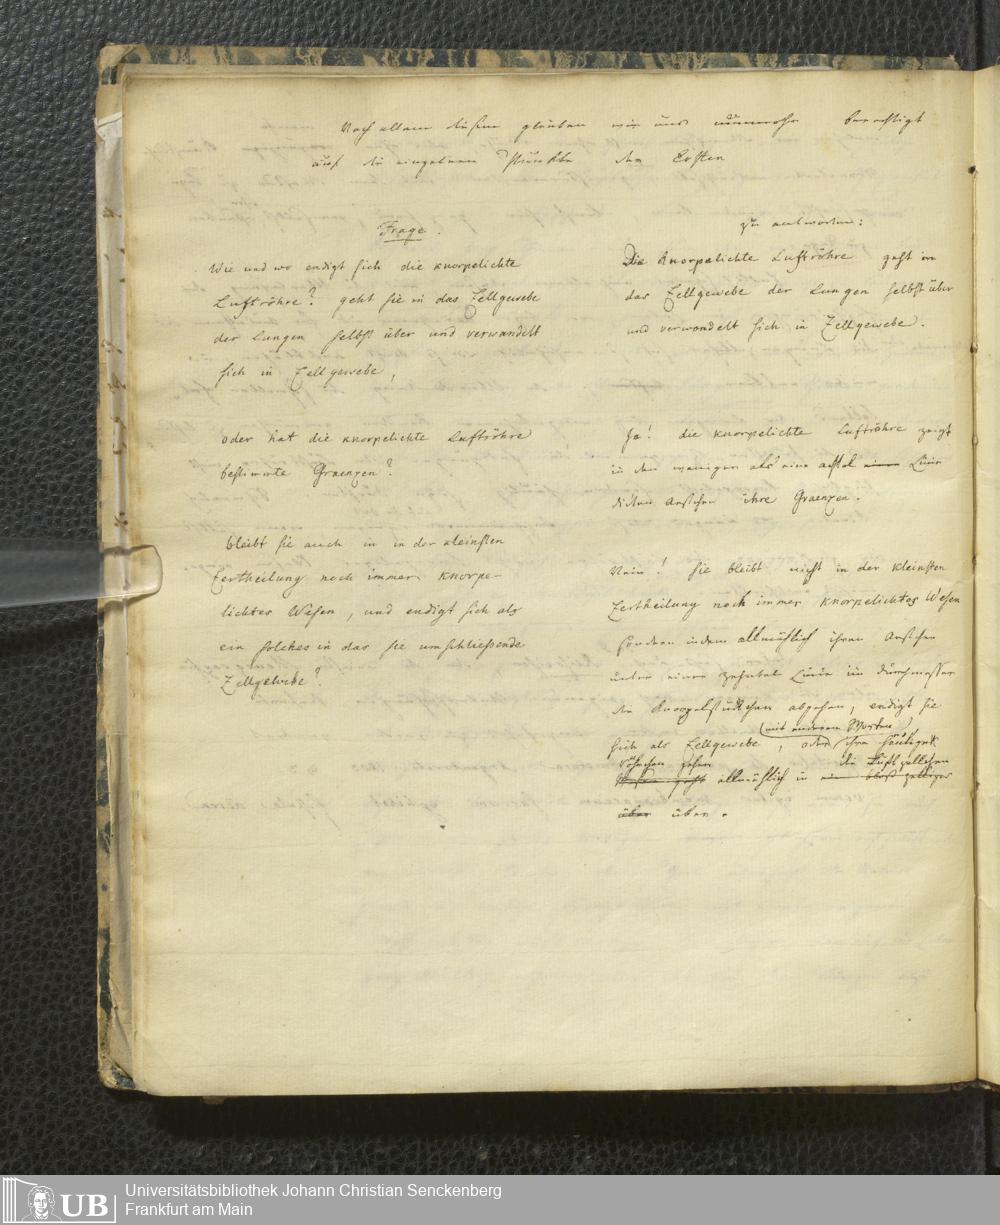 Nach allem diesem glauben wir uns nunmehr berechtigt
auf die einzelnen Punkte der Ersten
Frage.
Wie und wo endigt sich die knorpelichte
Luftröhre? geht sie in das Zellgewebe
der Lungen selbst über und verwandelt
sich in Zellgewebe,
oder hat die knorpelichte Luftröhre
bestimmte Graenzen?
bleibt sie auch in in der kleinsten
Zertheilung noch immer knorpe-
lichtes Wesen, und endigt sich als
ein solches in das sie umschließende
Zellgewebe?
zu antworten:
Die knorpelichte Luftröhre geht in
das Zellgewebe der Lungen selbst über
und verwandelt sich in Zellgewebe.
Ja! die knorpelichte Luftröhre zeigt
in den weniger als eine achtel einer Linie
dicken Aestchen ihre Graenzen.
Nein! sie bleibt nicht in der kleinsten
Zertheilung noch immer knorpelichtes Wesen
sondern indem allmählich ihren Aestchen
unter einer zehntel Linie im Durchmesser
die Knorpelstückchen abgehen, endigt sie
(mit anderen Worten)
sich als Zellgewebe, oder ihre häutigen
Röhrchen gehen die Luftzellchen
allmählich in ein bloß zelliges
über über.
Universitätsbibliothek Johann Christian Senckenberg
Frankfurt am Main
UB